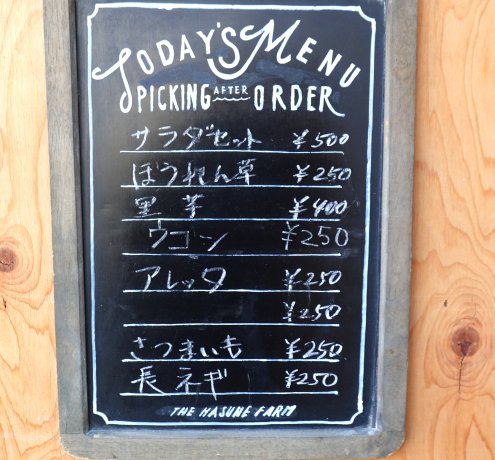 TODAY'S MENU
PICKING AFTER ORDER
サラダセット ¥500
ほうれん草 ¥250
里芋 ¥400
ウコン ¥250
アレッタ ¥250
¥250
さつまいも ¥250
長ネギ ¥250
THE HASUNE FARM